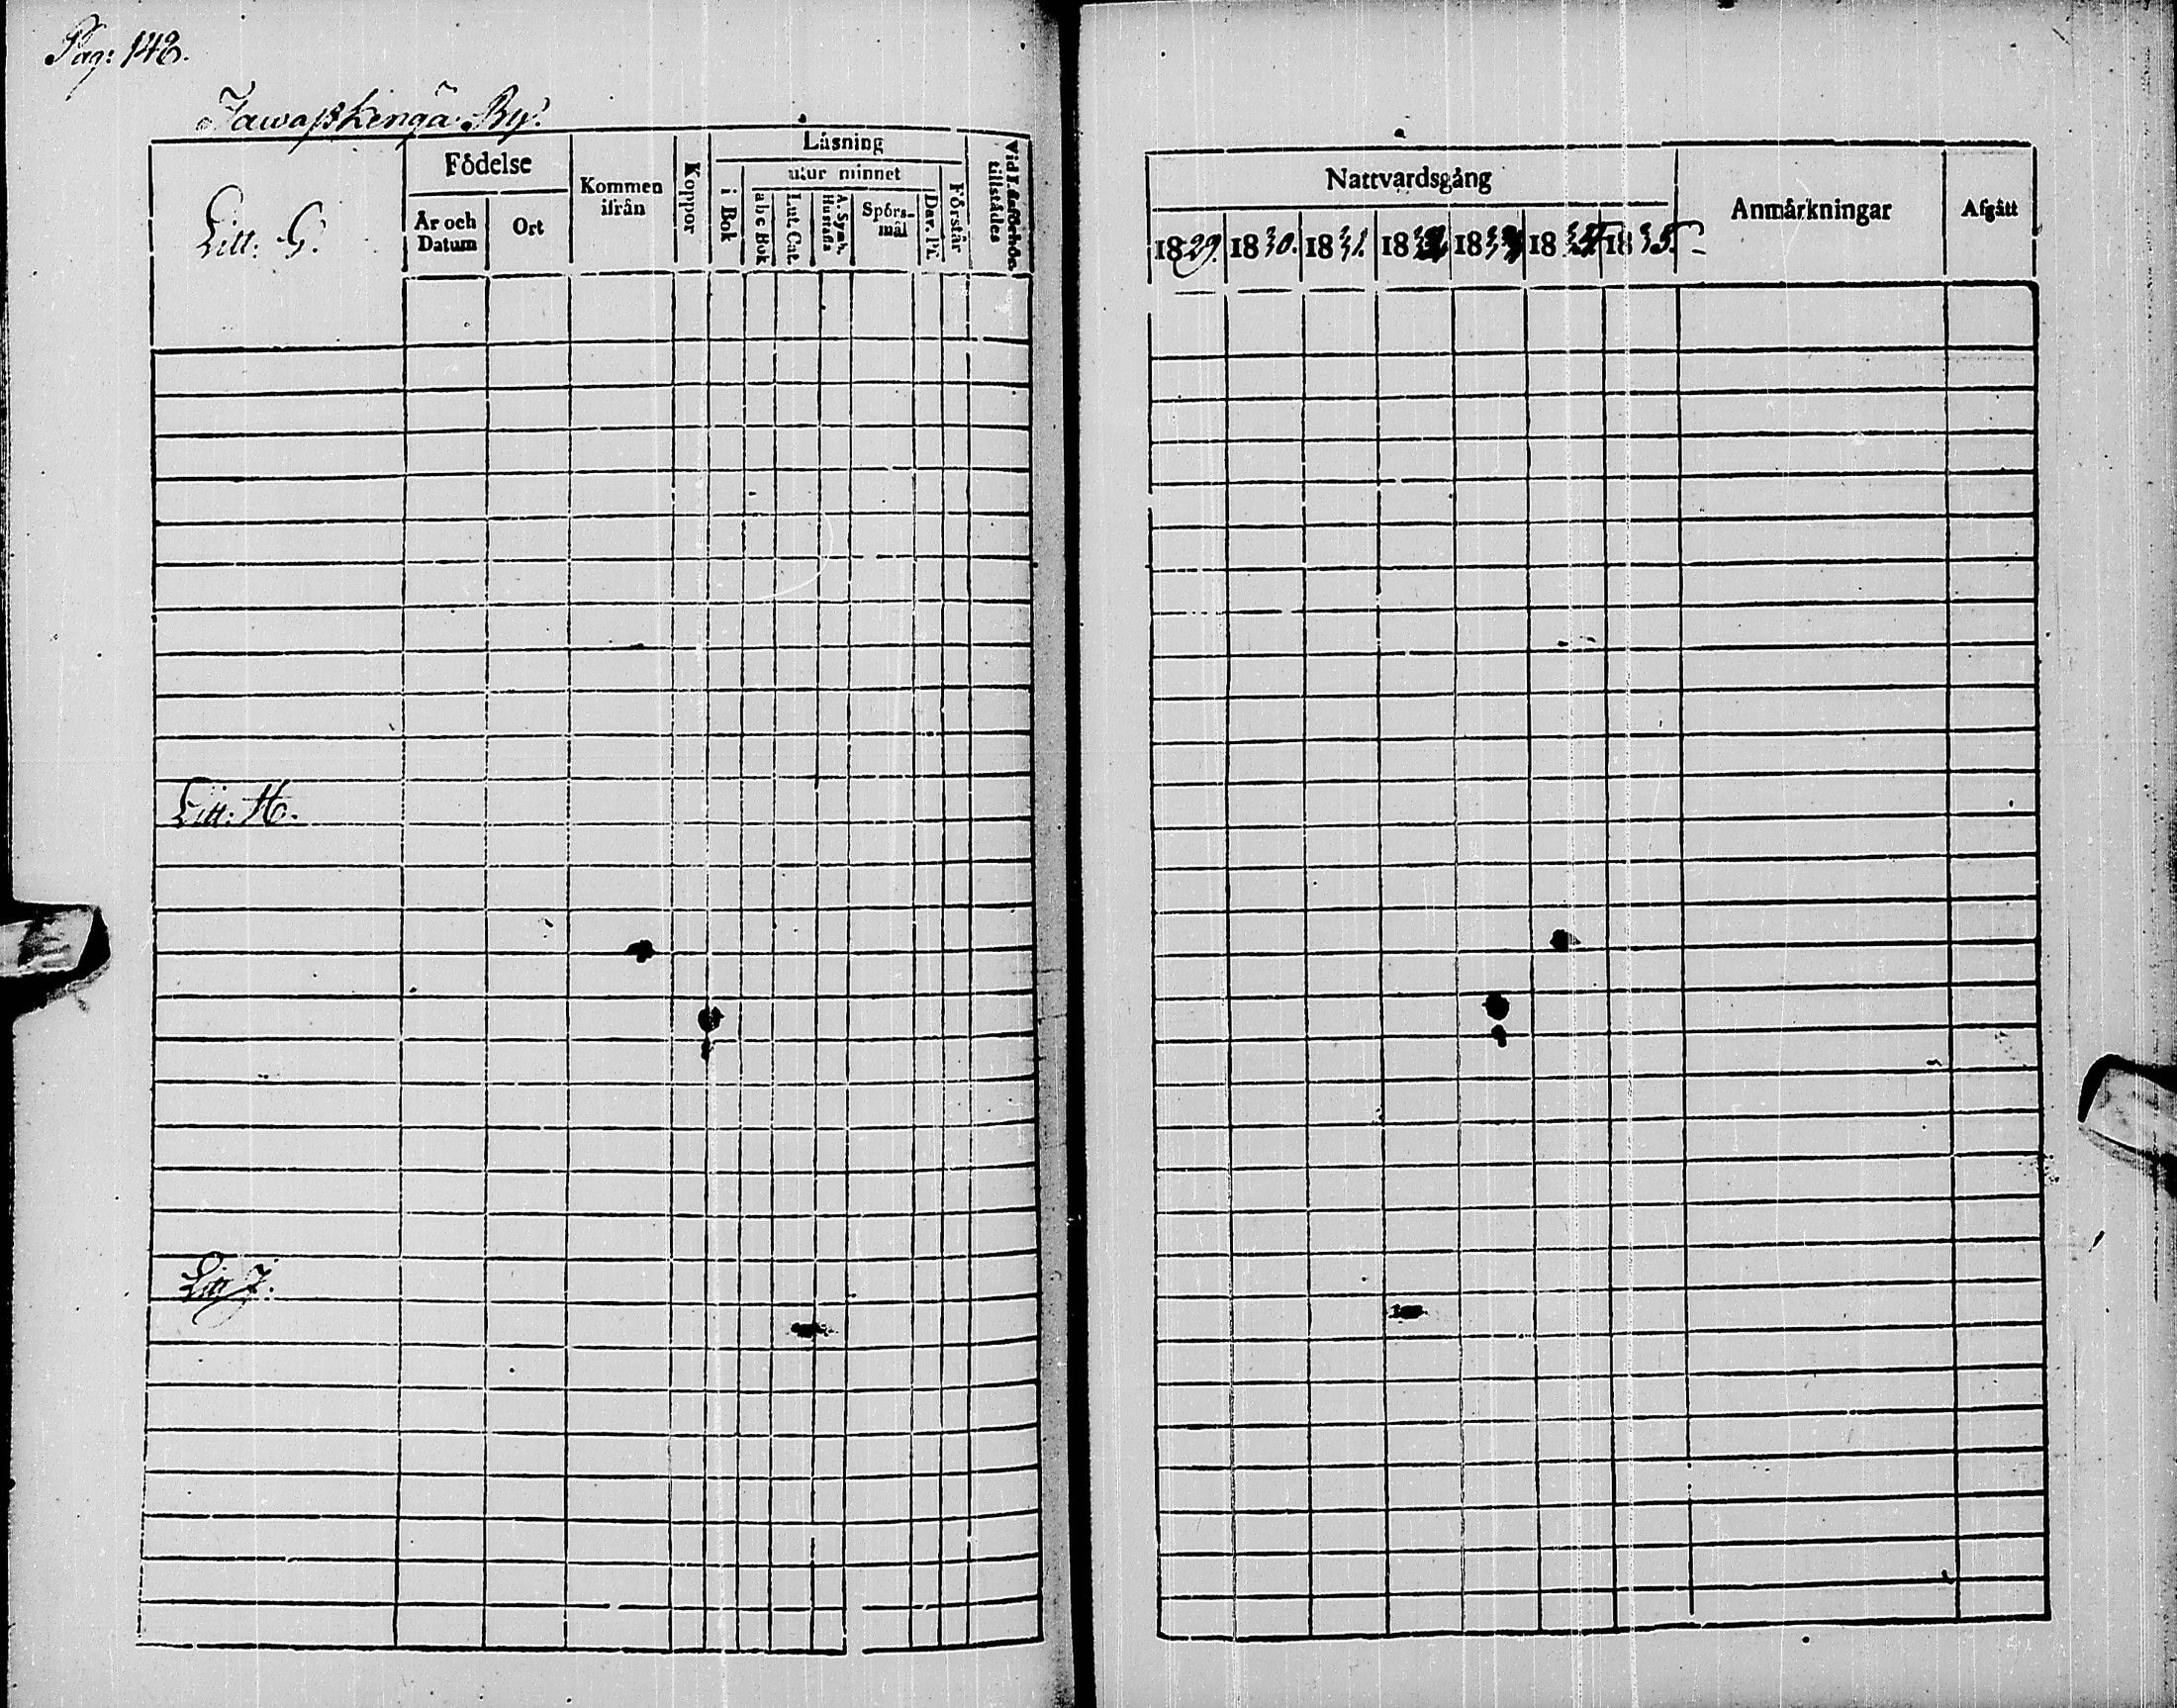 Pag: 148.
Jawaßkengä By.
Litt: G.
Födelse
År och Datum
Ort
Kommen ifrån
Koppor
Läsning
i Bok
utur minnet
abc Bok
Lut. Cat.
A. Symb. Hustafla
Spörsmål
Dav. Ps.
Förstår
Vid Läseförhör tillstädes
Nattvardsgång
1829. 1830. 1831. 1832 1833 1834 1835.
Anmärkningar
Afgått
Litt: H.
Litt J.